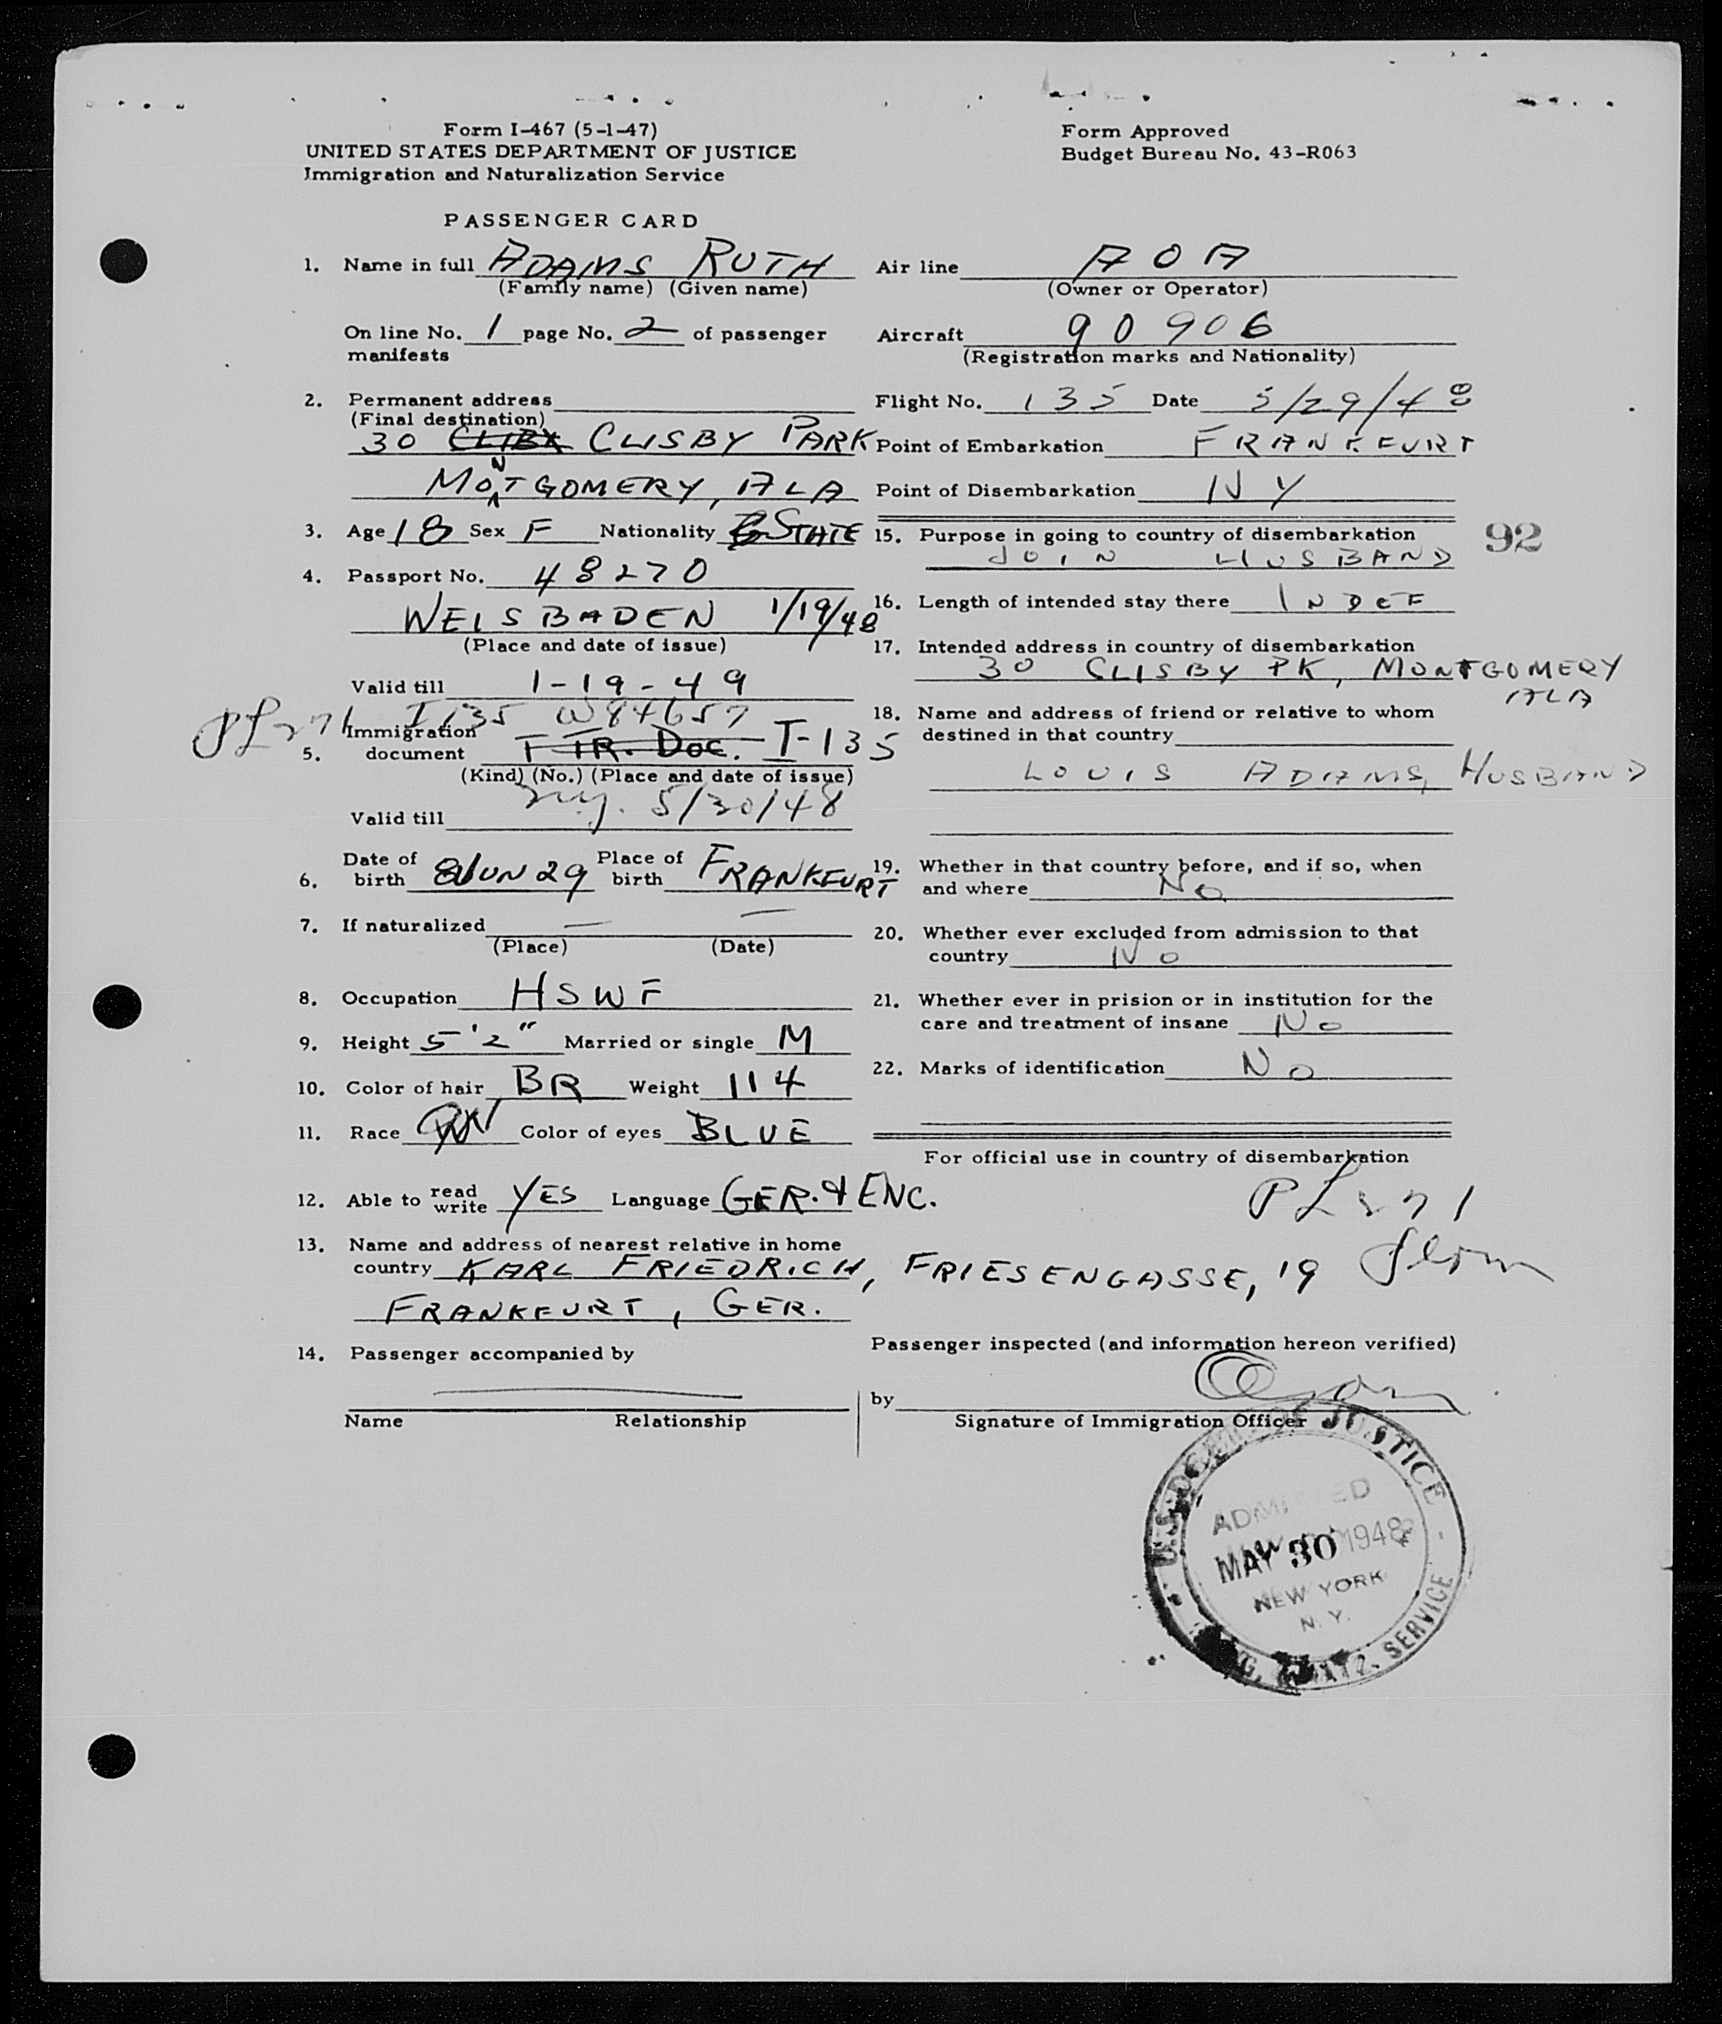 Form I-467 (5-1-47)
UNITED STATES DEPARTMENT OF JUSTICE
Immigration and Naturalization Service
Form Approved
Budget Bureau No. 43-R063
PASSENGER CARD
1. Name in full ADAMS RUTH
(Family name) (Given name)
On line No. 1 page No. 2 of passenger
manifests
2. Permanent address
(Final destination)
30 CLISBY PARK
MONTGOMERY, ALA
3. Age 18 Sex F Nationality STATE
4. Passport No. 48270
WEISBADEN 1/19/48
(Place and date of issue)
Valid till 1-19-49
PL271 I 135 W84657
Immigration
5. document T TR. DOC. I-135
(Kind) (No.) (Place and date of issue)
NY. 5/30/48
Valid till
Date of Place of
6. birth 8 JUN 29 birth FRANKFURT
7. If naturalized — —
(Place) (Date)
8. Occupation HSWF
9. Height 5'2" Married or single M
10. Color of hair BR Weight 114
11. Race Color of eyes BLUE
12. Able to read write YES Language GER. & ENG.
13. Name and address of nearest relative in home
country KARL FRIEDRICH, FRIESENGASSE, 19
FRANKFURT, GER.
14. Passenger accompanied by
Name Relationship
Air line AOA
(Owner or Operator)
Aircraft 90906
(Registration marks and Nationality)
Flight No. 135 Date 5/29/48
Point of Embarkation FRANKFURT
Point of Disembarkation NY
15. Purpose in going to country of disembarkation
JOIN HUSBAND
92
16. Length of intended stay there INDEF
17. Intended address in country of disembarkation
30 CLISBY PK, MONTGOMERY
ALA
18. Name and address of friend or relative to whom
destined in that country
LOUIS ADAMS, HUSBAND
19. Whether in that country before, and if so, when
and where No
20. Whether ever excluded from admission to that
country No
21. Whether ever in prision or in institution for the
care and treatment of insane No
22. Marks of identification No
For official use in country of disembarkation
PL271
Passenger inspected (and information hereon verified)
by
Signature of Immigration Officer
U.S. DEPT. OF JUSTICE
ADMITTED
MAY 30 1948
NEW YORK
N.Y.
SERVICE